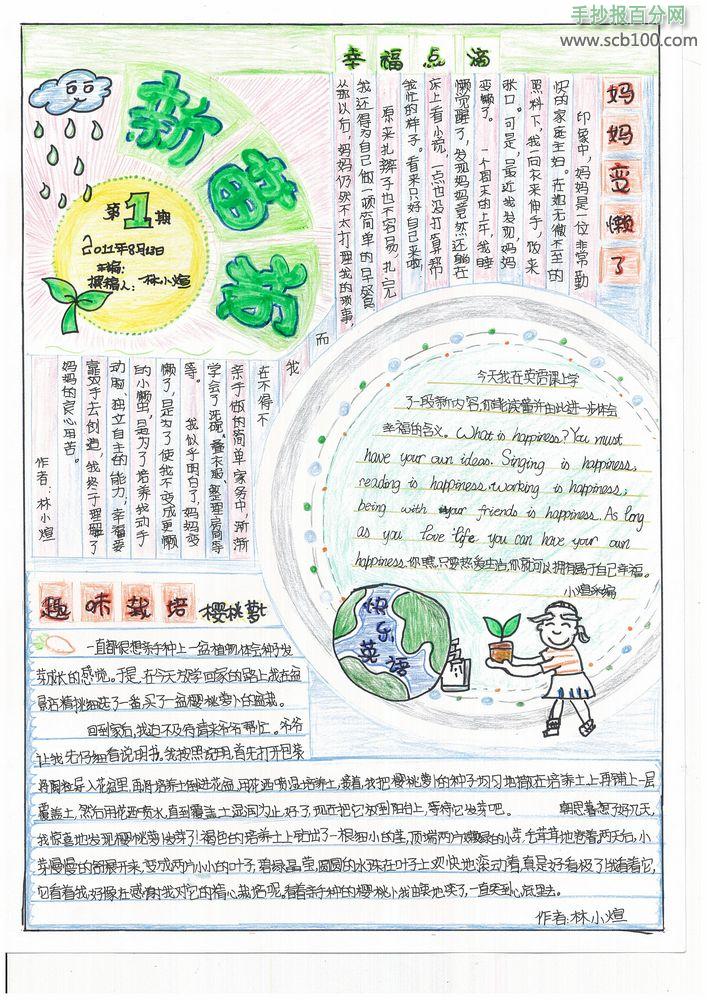 手抄报百分网
www.scb100.com
新苗坊
第1期
2011年8月13日
主编:
撰稿人:林小煊
幸福点滴
妈妈变懒了
印象中,妈妈是一位非常勤
快的家庭主妇。在她无微不至的
照料下,我一向衣来伸手,饭来
张口。可是,最近我发现,妈妈
变懒了。 一个周末的上午,我睡
懒觉醒了,发现妈妈竟然还躺在
床上看小说,一点也没打算帮
我忙的样子。看来只好自己来啦!
原来扎辫子也不容易,扎完
我还得为自己做一顿简单的早餐。
那以后,妈妈仍然不太打理我的琐事,
而
我
在不得不
亲手做的简单家务中,渐渐
学会了洗碗、叠衣服、整理房间等
等。 我似乎明白了,妈妈变
懒了,是为了使我不变成更懒
的小懒虫,是为了培养我动手
动脑、独立自主的能力,幸福要
靠双手去创造,我终于理解了
妈妈的良心用苦。
作者:林小煊
今天我在英语课上学
了一段新内容,你能读懂并由此进一步体会
幸福的含义。What is happiness? You must
have your own ideas. Singing is happiness,
reading is happiness. working is happiness;
being with your friends is happiness. As long
as you love life you can have your own
happiness.你瞧,只要热爱生活,你就可以拥有属于自己幸福。
小煊采编
快乐英语
趣味栽培 樱桃萝卜
一直都很想亲手种上一盆植物,体会种子发
芽成长的感觉。于是,在今天放学回家的路上,我在盆
景店精挑细选了一番,买了一盆樱桃萝卜的盆栽。
回到家后,我迫不及待请来爷爷帮忙。爷爷
让我先仔细看说明书。我按照说明,首先打开包装
将陶粒导入花盆里,再将培养土倒进花盆,用花洒喷湿培养土,接着,我把樱桃萝卜的种子均匀地撒在培养土上,再铺上一层
覆盖土,然后用花洒喷水,直到覆盖土湿润为止,好了,现在把它放到阳台上,等待它发芽吧。 朝思暮想了好几天,
我惊喜地发现樱桃萝卜发芽了!褐色的培养土上钻出了一根细小的茎,顶端两片嫩绿的小芽毛茸茸地卷着。两天后,小
芽慢慢的舒展开来,变成两片小小的叶子,碧绿晶莹,圆圆的水珠在叶子上欢快地滚动着,真是好看极了!我看着它,
它看着我,好像在感谢我对它的精心栽培呢。看着亲手种的樱桃萝卜我由衷地笑了,一直笑到心底里去。
作者:林小煊